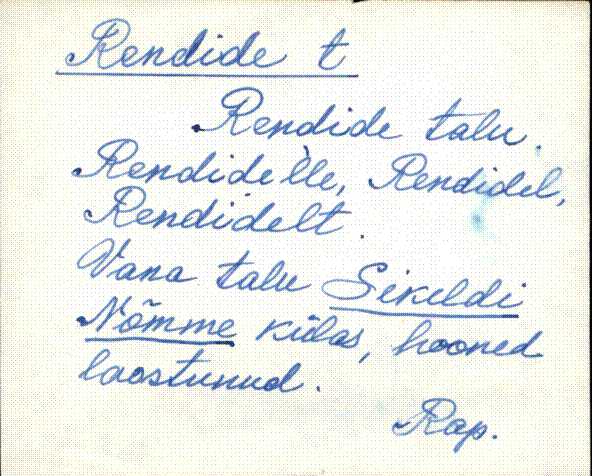 Rendide t
Rendide talu.
Rendide`lle, Rendidel,
Rendidelt.
Vana talu Sikeldi
Nõmme külas, hooned
laostunud.
Rap.